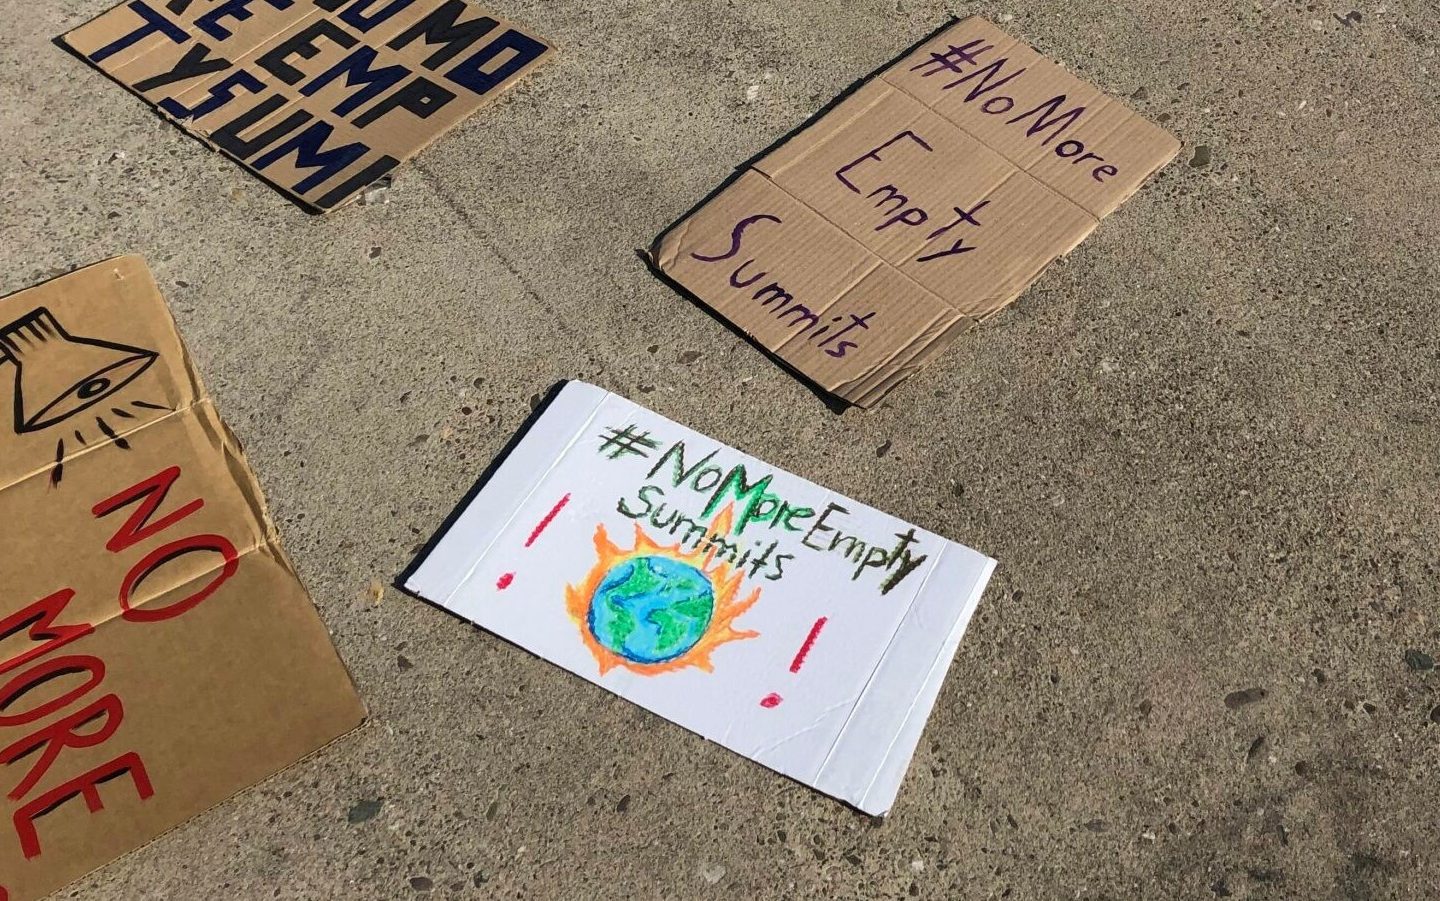 NOMO
RE EMP
TYSUMMI
#NoMore
Empty
Summits
NO
MORE
#NoMoreEmpty
Summits
! !